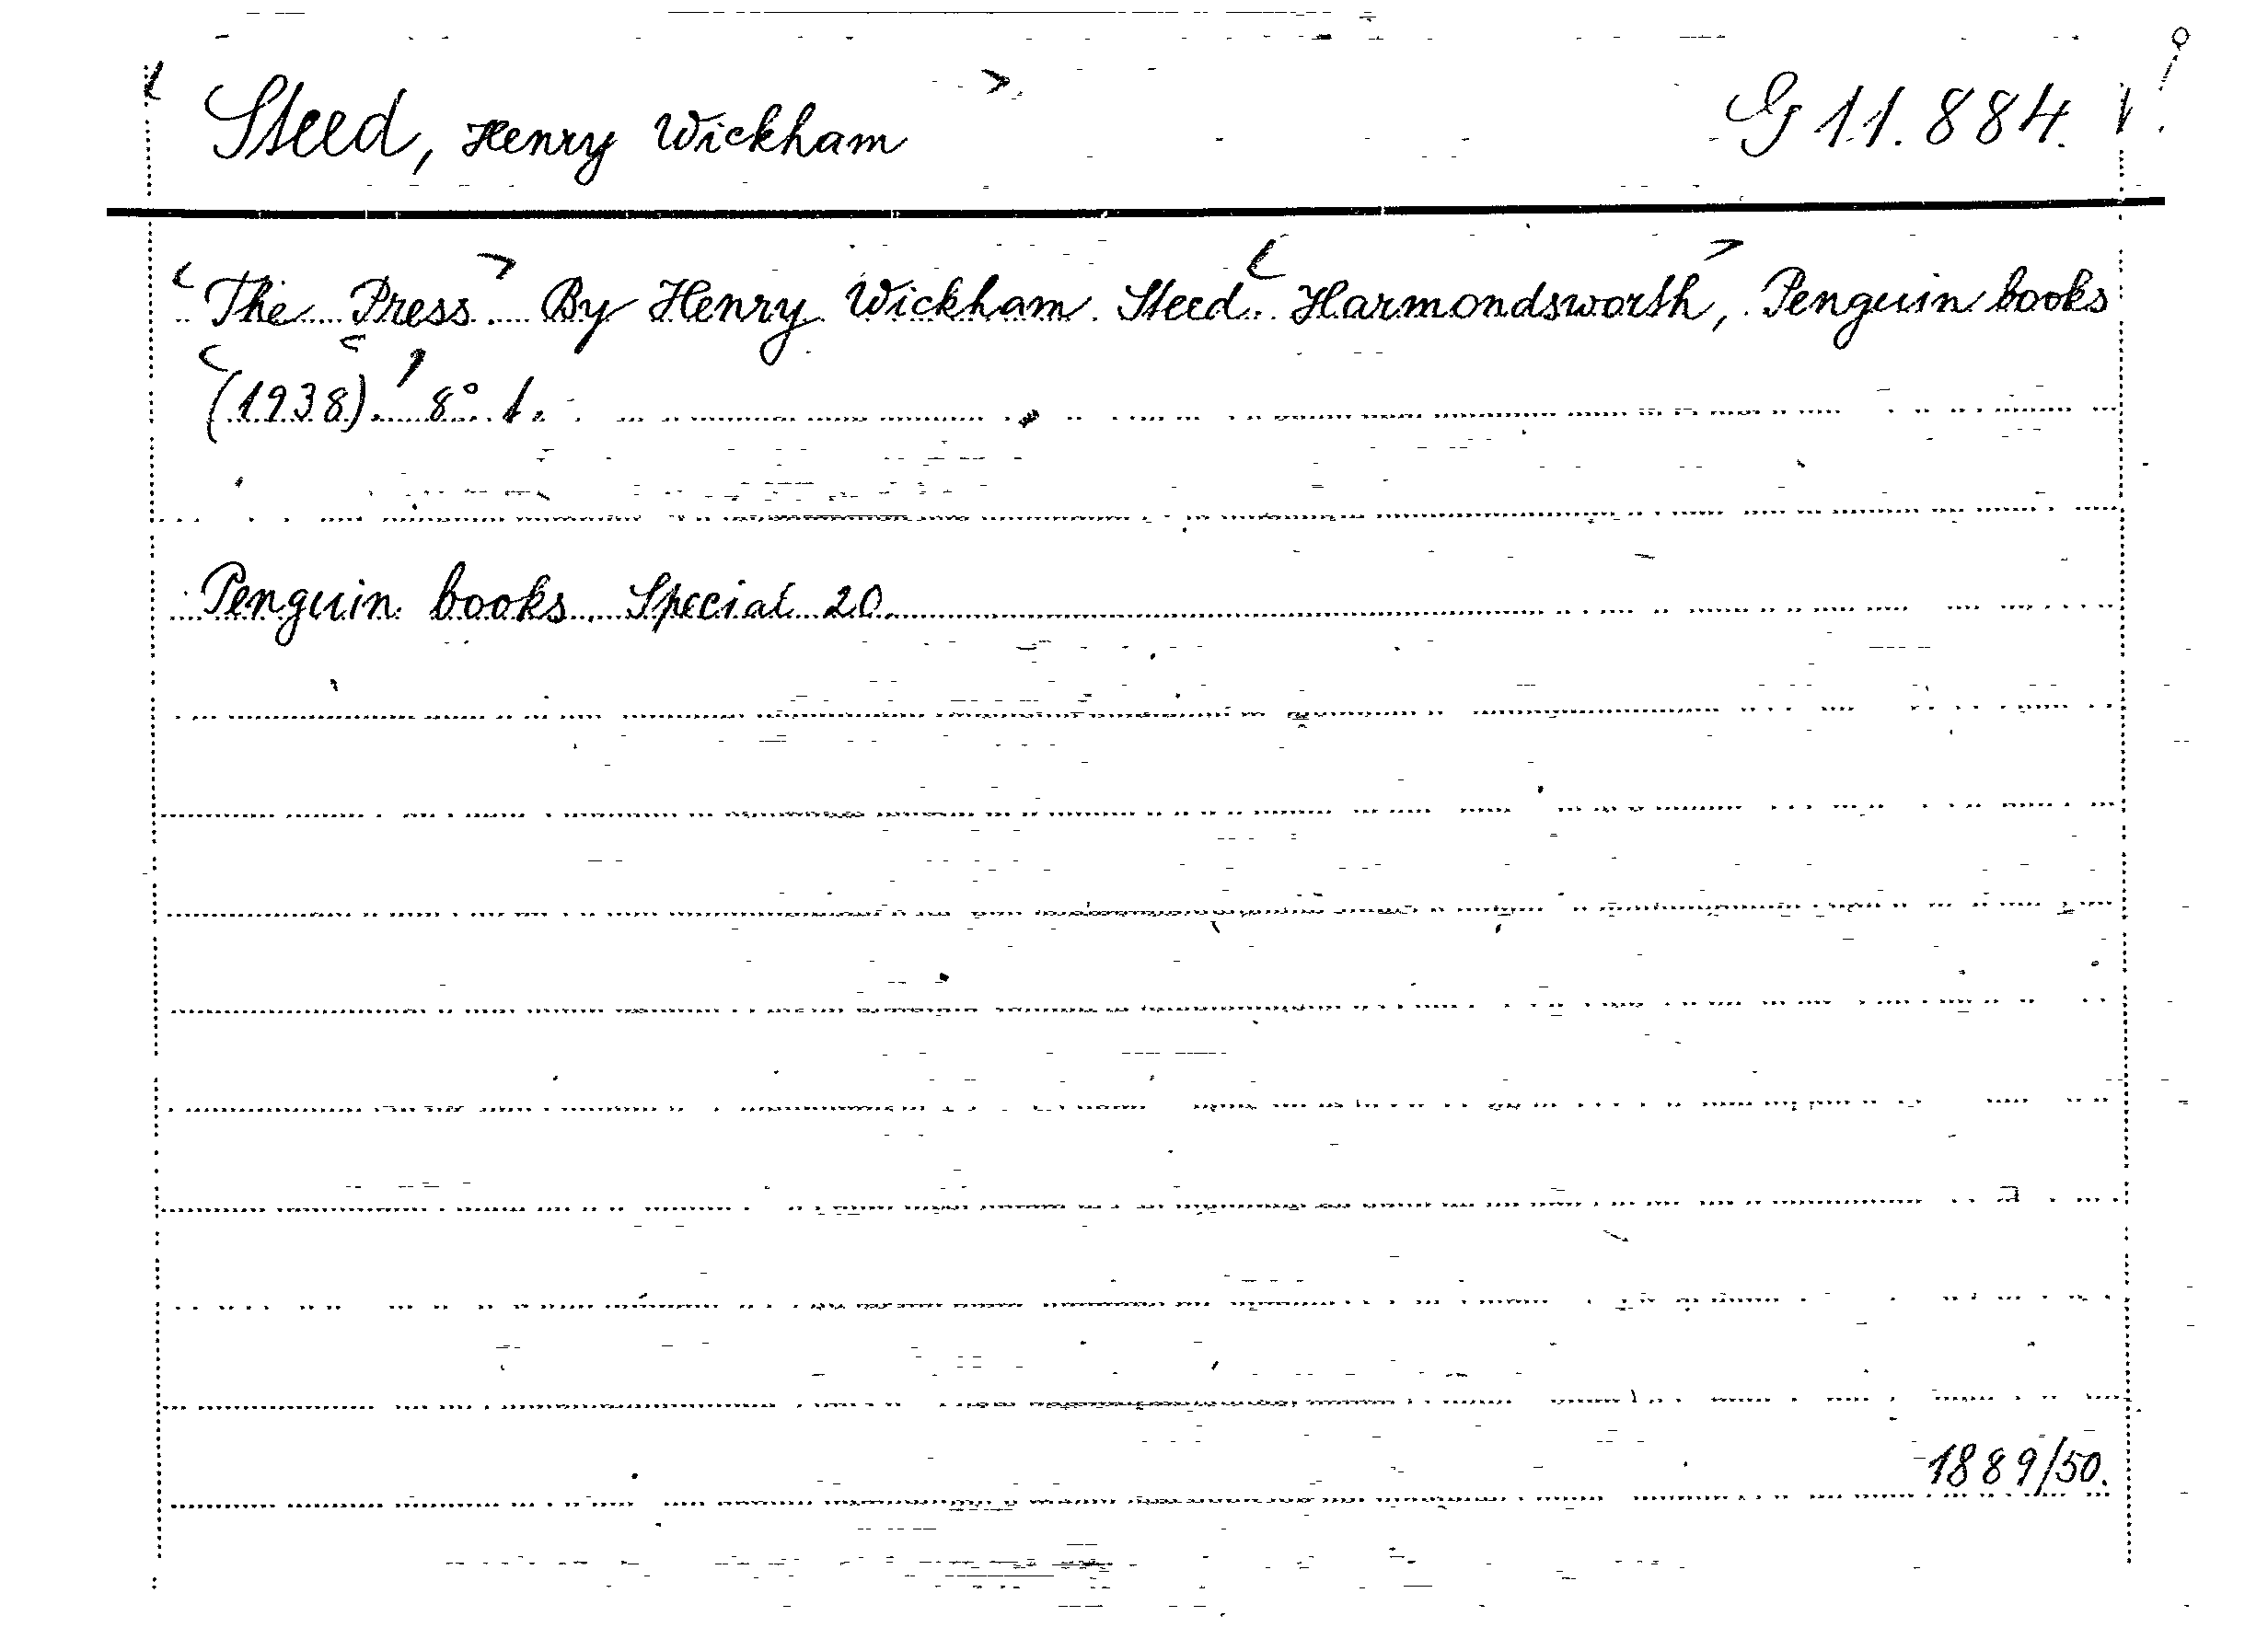 Steed, Henry Wickham
G 11.884.
The Press. By Henry Wickham Steed. Harmondsworth, Penguin books
(1938). 8° 1.
Penguin books. Special 20.
1889/50.